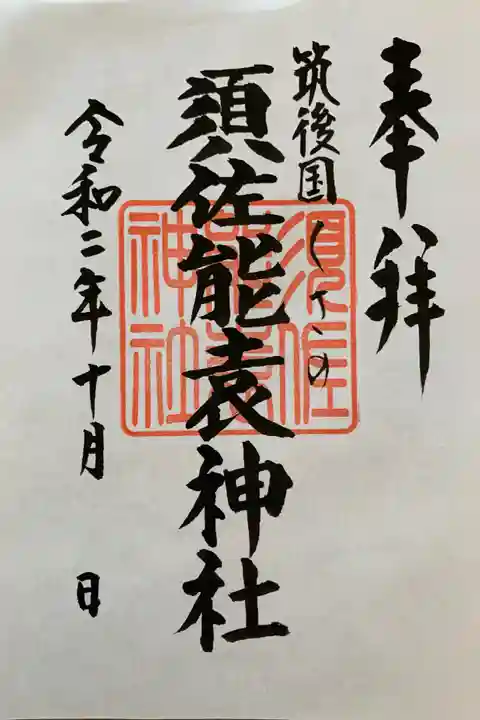 奉拝
筑後国くさの
須佐能袁神社
須佐
能袁
神社
令和二年十月 日